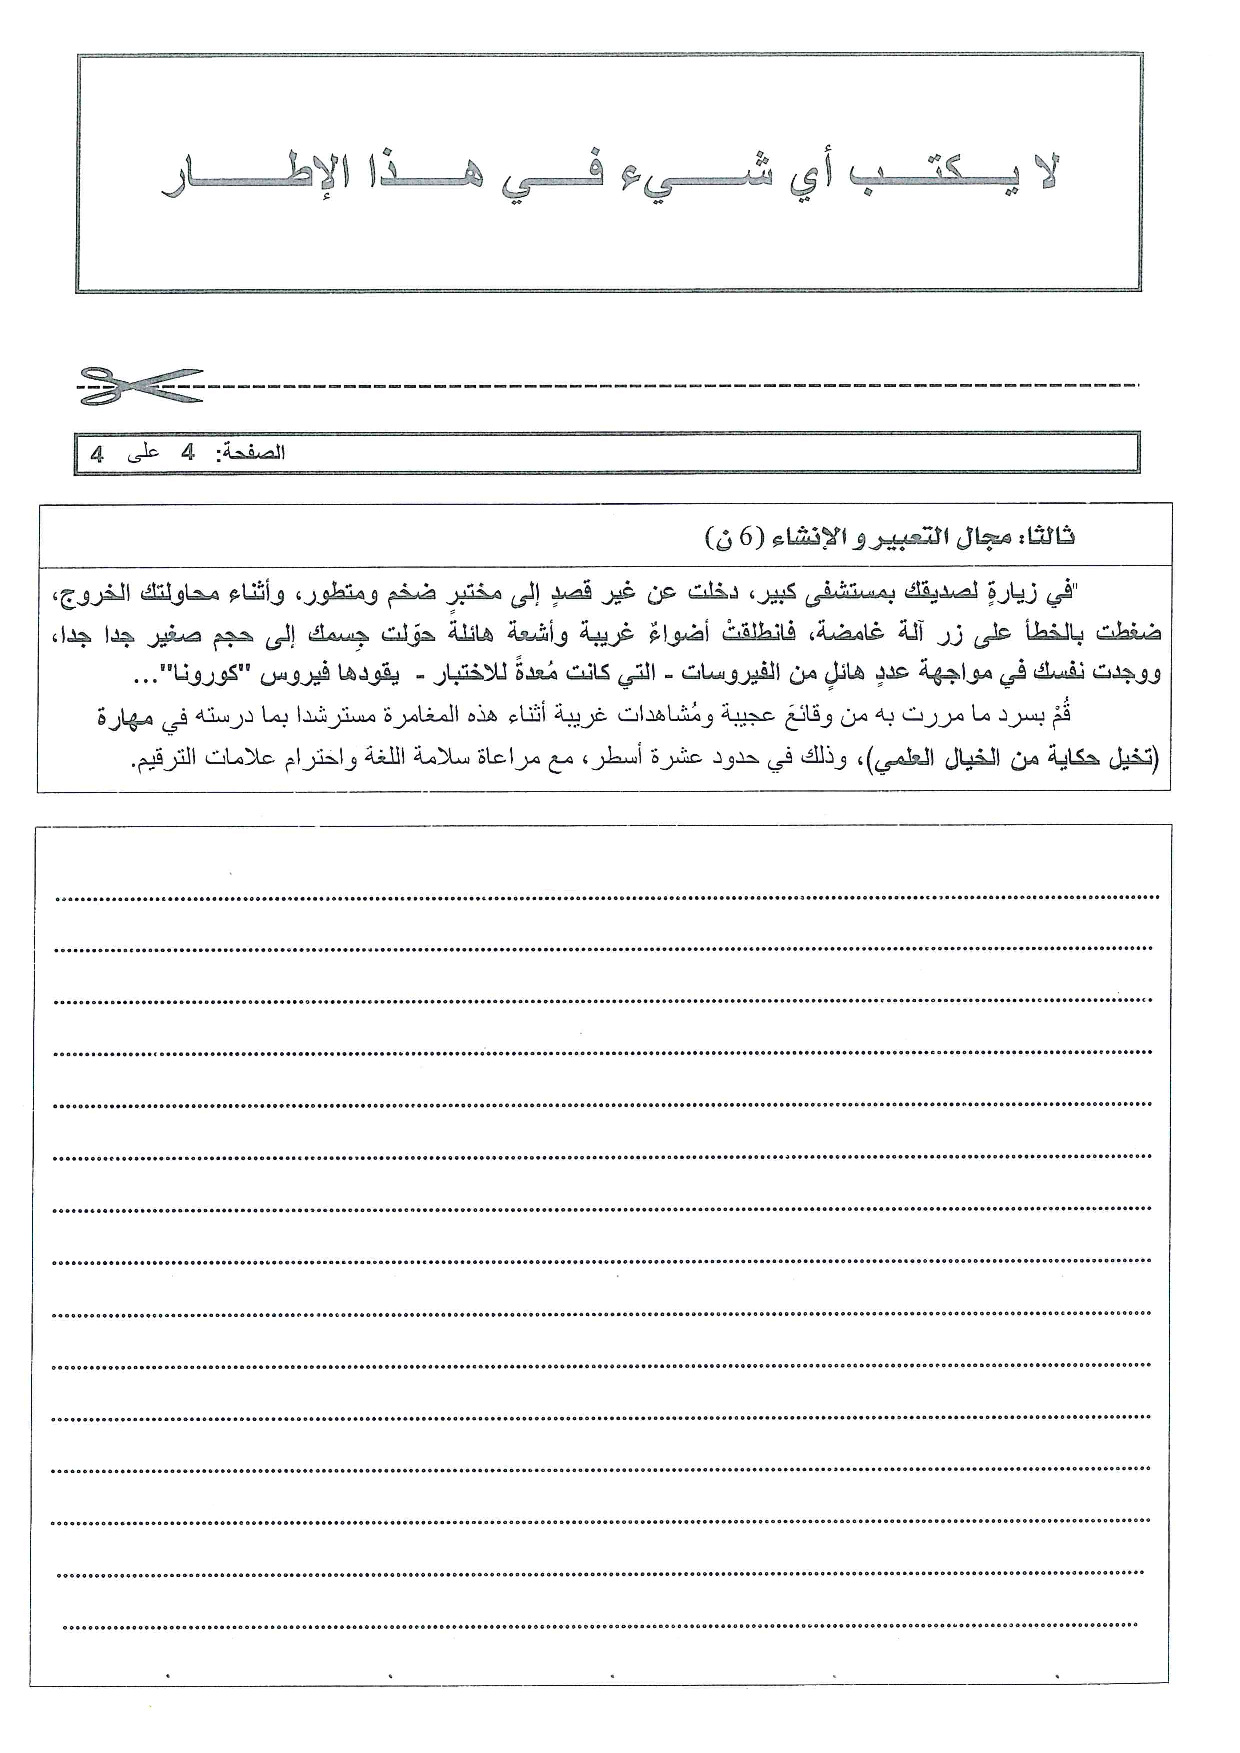 لا يكتب أي شيء في هذا الإطار
الصفحة: 4 على 4
ثالثا: مجال التعبير و الإنشاء (6 ن)
"في زيارةٍ لصديقك بمستشفى كبير، دخلت عن غير قصدٍ إلى مختبرٍ ضخم ومتطور، وأثناء محاولتك الخروج،
ضغطت بالخطأ على زر آلة غامضة، فانطلقتْ أضواءٌ غريبة وأشعة هائلةٌ حوّلت جِسمك إلى حجم صغير جدا جدا،
ووجدت نفسك في مواجهة عددٍ هائلٍ من الفيروسات - التي كانت مُعدةً للاختبار - يقودها فيروس "كورونا"...
قُمْ بسرد ما مررت به من وقائعَ عجيبة ومُشاهدات غريبة أثناء هذه المغامرة مسترشدا بما درسته في مهارة
(تخيل حكاية من الخيال العلمي)، وذلك في حدود عشرة أسطر، مع مراعاة سلامة اللغة واحترام علامات الترقيم.